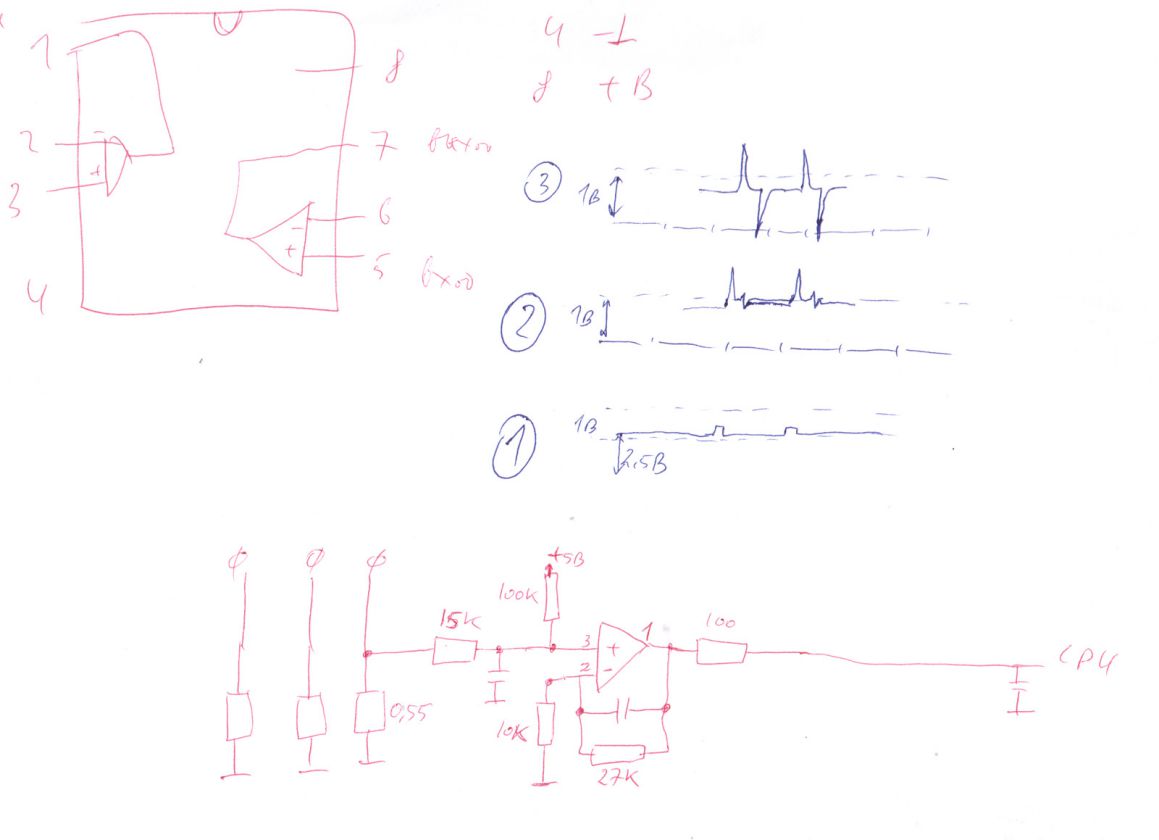 1
2
3
4
8
7 выход
6
5 вход
- +
- +
4 -⊥
8 +В
3 1В
2 1В
1 1В
2,5В
ф ф ф
+5В
100К
15К
3 + 1
2 -
100
CPU
0,55
10К
27К